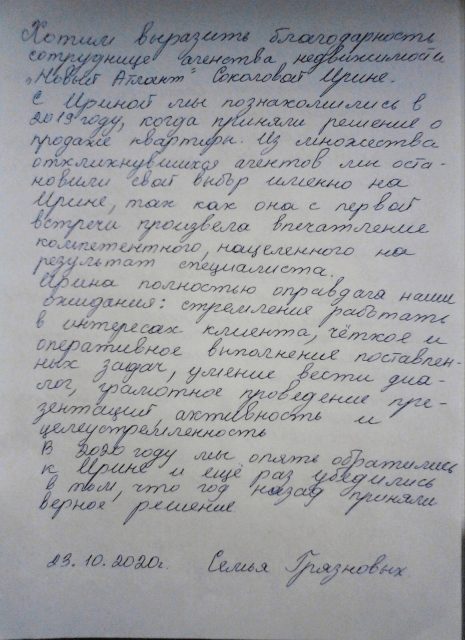 Хотим выразить благодарность
сотруднице агенства недвижимости
„Новый Атлант" Соколовой Ирине.
С Ириной мы познакомились в
2019 году, когда приняли решение о
продаже квартиры. Из множества
откликнувшихся агентов мы оста-
новили свой выбор именно на
Ирине, так как она с первой
встречи произвела впечатление
компетентного, нацеленного на
результат специалиста.
Ирина полностью оправдала наши
ожидания: стремление работать
в интересах клиента, чёткое и
оперативное выполнение поставлен-
ных задач, умение вести диа-
лог, грамотное проведение пре-
зентаций, активность и
целеустремлённость
В 2020 году мы опять обратились
к Ирине и ещё раз убедились
в том, что год назад приняли
верное решение
23.10.2020г. Семья Грязновых